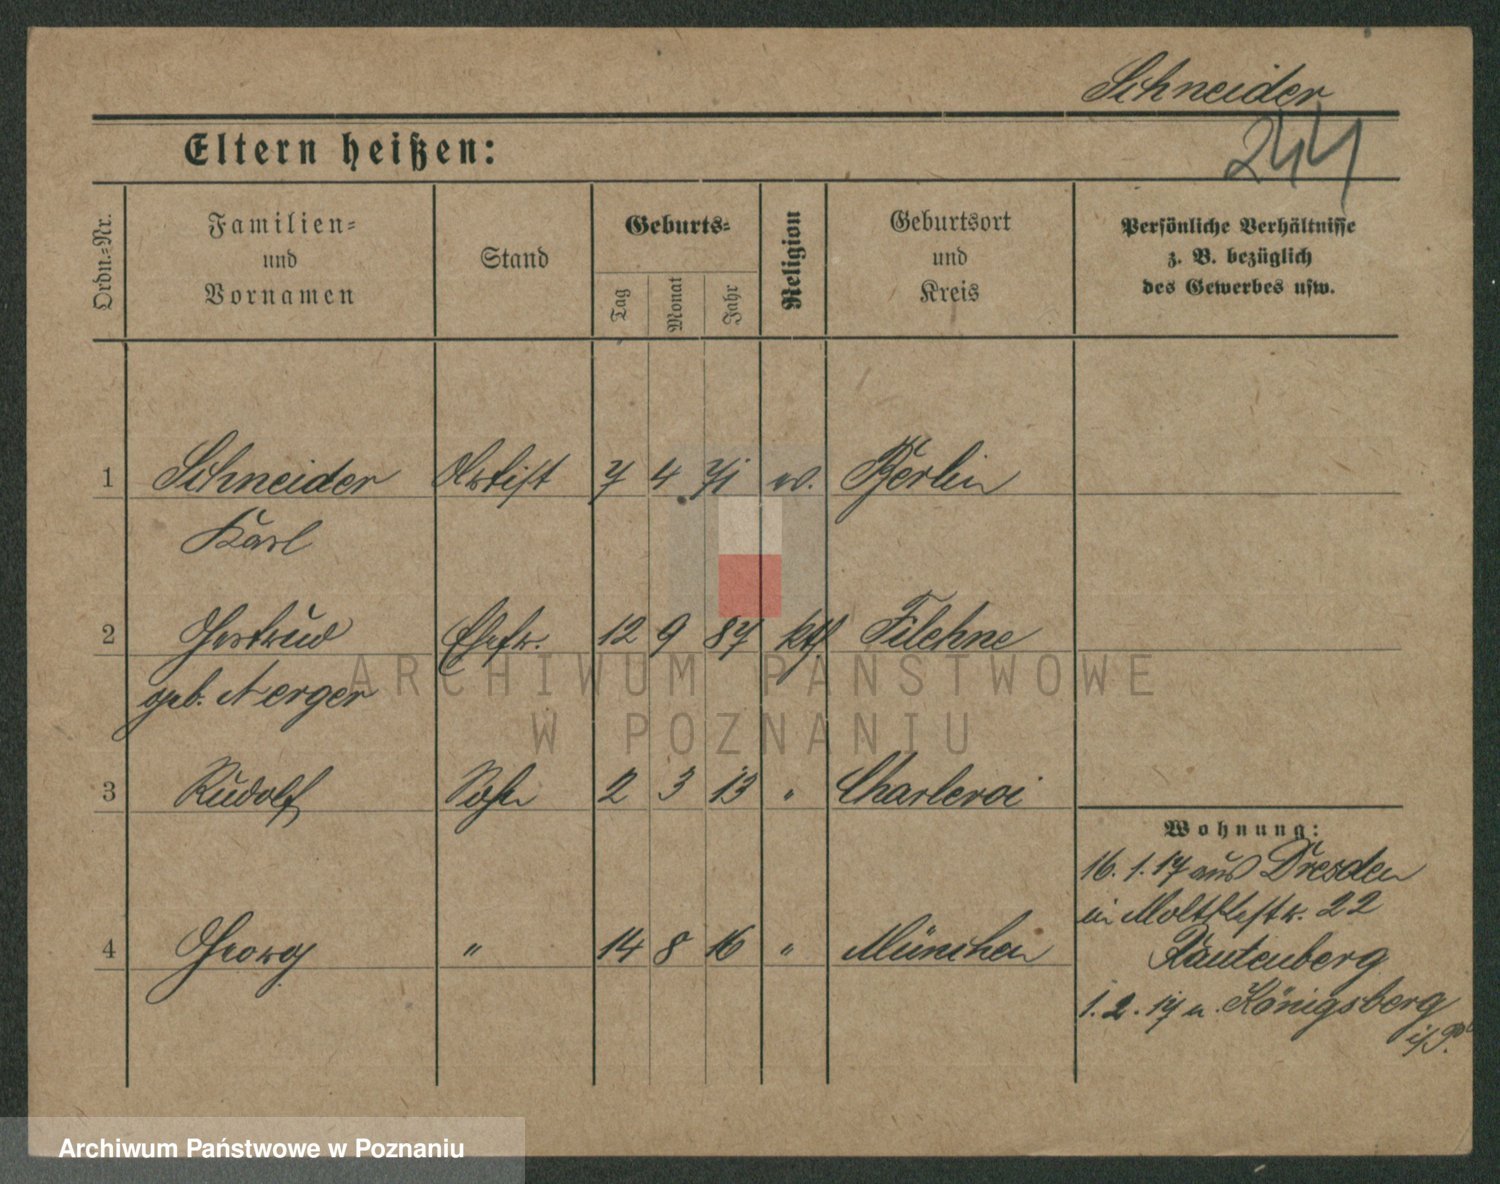 Schneider
244
Eltern heißen:
Ordn.=Nr.
Familien=
und
Vornamen
Stand
Geburts=
Tag
Monat
Jahr
Religion
Geburtsort
und
Kreis
Persönliche Verhältnisse
z. B. bezüglich
des Gewerbes usw.
1 Schneider Artist 7 4 71 ev. Berlin
Karl
2 Gertrud Ehefr. 12 9 87 kth. Filehne
geb. Nerger
3 Rudolf Sohn 2 3 13 " Charleroi
4 Georg " 14 8 16 " München
Wohnung:
16. 1. 17 aus Dresden
in Moltkestr. 22
Rautenberg
1. 2. 17 n. Königsberg
i/P.
ARCHIWUM PAŃSTWOWE
W POZNANIU
Archiwum Państwowe w Poznaniu